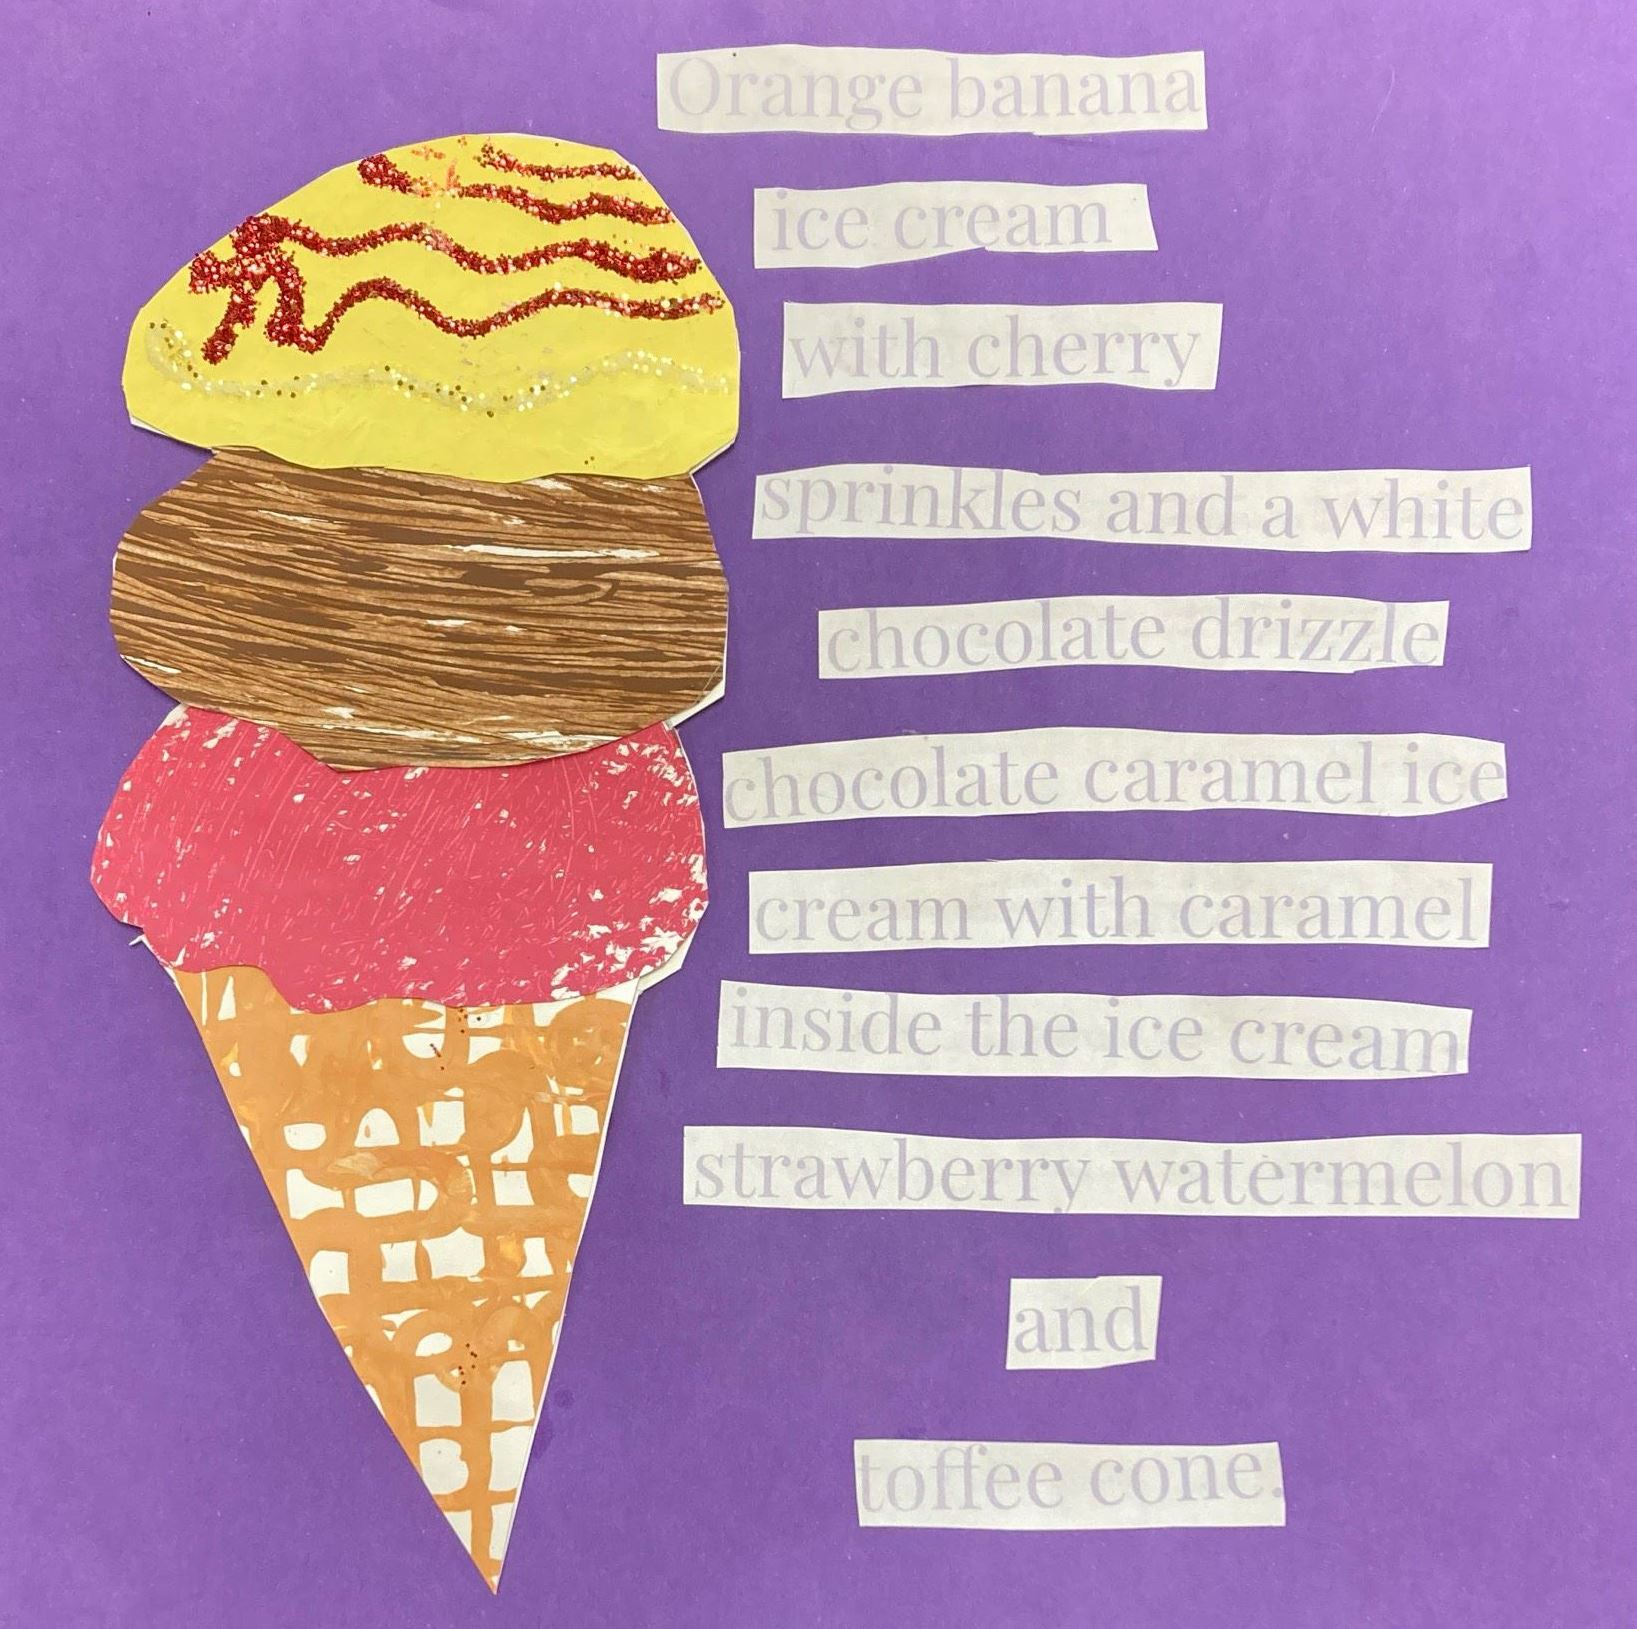 Orange banana
ice cream
with cherry
sprinkles and a white
chocolate drizzle
chocolate caramel ice
cream with caramel
inside the ice cream
strawberry watermelon
and
toffee cone.